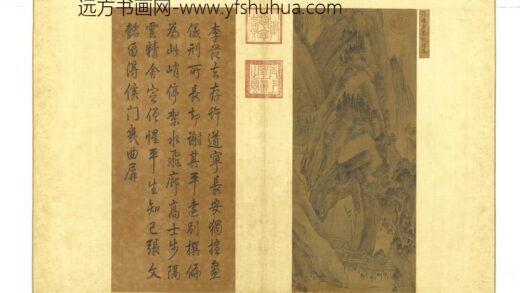 远方书画网-www.yfshuhua.com
李范去存許道寧長安獨擅畫
儀刑所長却謝其平遠別撰偏
為此峭停架水飛廊高士步隔
雲精舍定僧惺平生知己張文
懿留得侯門幾曲屏